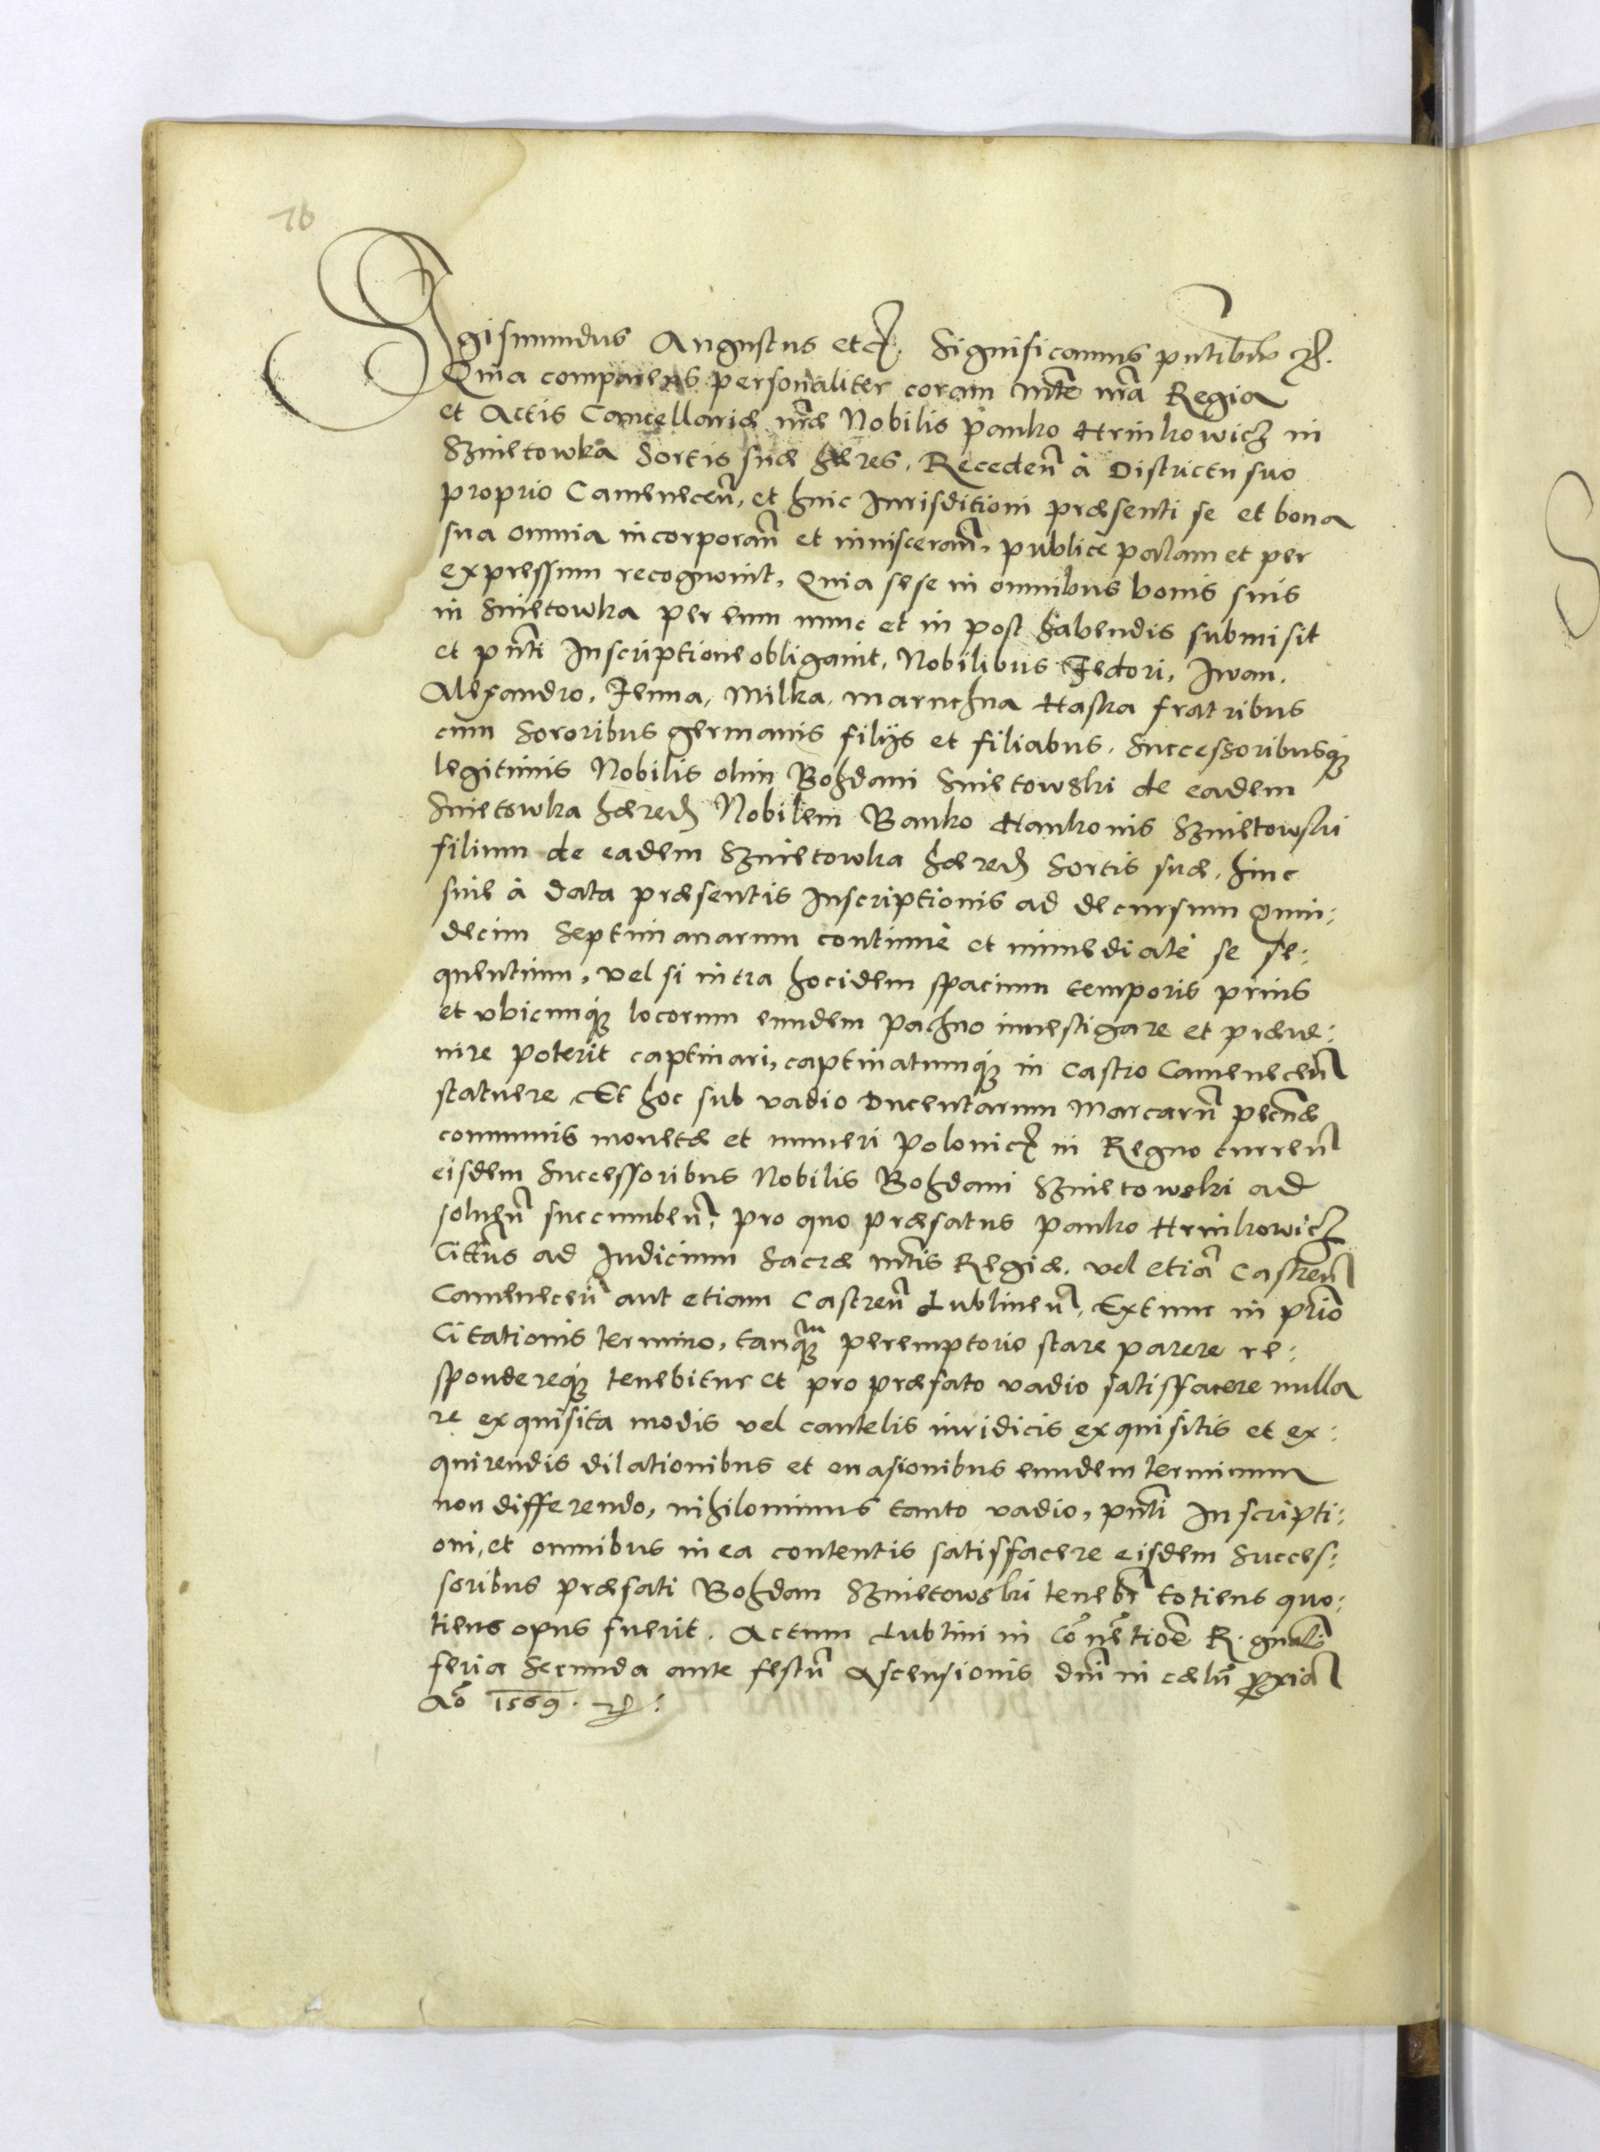 76
Sigismundus Augustus etc̃. Significamus pñtibus etc.
Quia comparens personaliter coram Mte nr̃a Regia
et Actis Cancellariæ nr̃æ Nobilis Panko Hrinkowicz in
Sznietowka Sortis suæ hæres, Receden̄ à Districtu suo
proprio Camenecen̄, et huic Jurisditioni præsenti se et bona
sua omnia incorporan̄ et inuisceran̄, publice palam et per
expressum recognouit, Quia sese in omnibus bonis suis
in Snietowka per eum nunc et in post habendis submisit
et pñti Inscriptione obligauit, Nobilibus Fedori, Iwan,
Alexandro, Fenna, Milka, Maruchna Haska fratribus
cum Sororibus germanis filijs et filiabus, Successoribusq́
legitimis Nobilis olim Bohdani Snietowski de eadem
Snietowka hæred̃ Nobilem Banko Hankonis Sznietowski
filium de eadem Sznietowka hæred̃ Sortis suæ, hinc
siue à data præsentis Inscriptionis ad decursum Quin:
decim Septimanarum continuè et immediatè se se:
quentium, vel si intra hocidem spacium temporis prius
et vbicunq́ locorum eundem Pachno inuestigare et præue:
nire poterit captiuari, captiuatumq́ in Castro Camenecen̄
statuere Et hoc sub vadio Ducentarum Marcarū pecũæ
communis monetæ et numeri Polonic̃ in Regno curren̄
eisdem Successoribus Nobilis Bohdani Sznietowski ad
soluen̄ succumben̄, pro quo præfatus Panko Hrinkowicz
Citt̃us ad Iudicium Sacræ Mt̃is Regiæ, vel etiã Castren̄
Camenecen̄ aut etiam Castren̄ Lublinen̄, Extunc in p̃rio
Citationis termino, tanq́m peremptorio stare parere re:
spondereq́ tenebitur et pro præfato vadio satisfacere nulla
re exquisita modis vel cautelis iuridicis exquisitis et ex:
quirendis dilationibus et euasionibus eundem terminum
non differendo, nihilominus tanto vadio, pñti Inscripti:
oni, et omnibus in ea contentis satisfacere eisdem Succes:
soribus præfati Bohdan Sznietowski tenebr̃ totiens quo:
tiens opus fuerit. Actum Lublini in Cõuẽtioẽ R. gñali
feria Secunda ante festũ Ascensionis dñi in cælũ proxiã
Aõ 1569. etc: